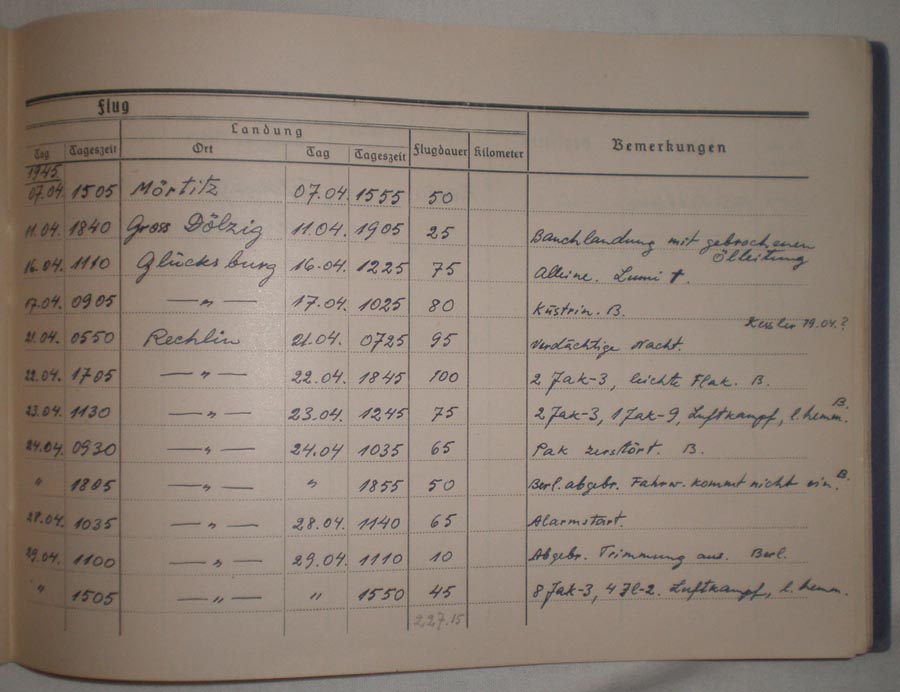 Flug
Landung
Tag Tageszeit Ort Tag Tageszeit Flugdauer Kilometer Bemerkungen
1945
07.04. 1505 Mörtitz 07.04. 1555 50
11.04. 1840 Gross Dölzig 11.04. 1905 25 Bauchlandung mit gebrochenen Ölleitung
16.04. 1110 Glücksburg 16.04. 1225 75 Alleine. Lumi †.
17.04. 0905 — „ — 17.04. 1025 80 Küstrin. B.
Kessler 19.04.?
21.04. 0550 Rechlin 21.04. 0725 95 Verdächtige Nacht.
22.04. 1705 — „ — 22.04. 1845 100 2 Jak-3, leichte Flak. B.
23.04. 1130 — „ — 23.04. 1245 75 2 Jak-3, 1 Jak-9, Luftkampf, l. hemm. B.
24.04. 0930 — „ — 24.04 1035 65 Pak zerstört. B.
„ 1805 — „ — „ 1855 50 Berl. abgebr. Fahrw. kommt nicht ein. B.
28.04. 1035 — „ — 28.04. 1140 65 Alarmstart.
29.04. 1100 — „ — 29.04. 1110 10 Abgebr. Trimmung aus. Berl.
„ 1505 — „ — „ 1550 45 8 Jak-3, 4 Jl-2. Luftkampf, l. hemm.
227.15